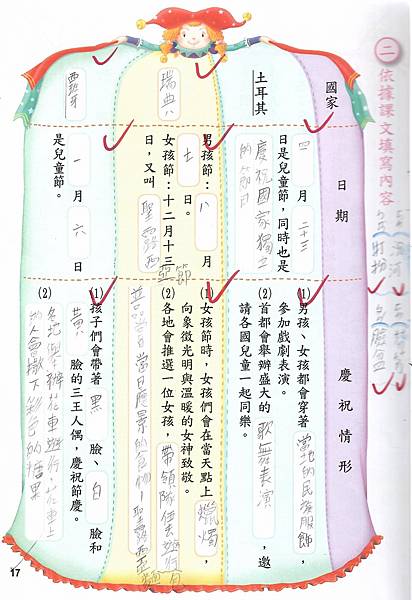 二 依據課文填寫內容
打扮
國家
日期
慶祝情形
土耳其
四月二十三
日是兒童節,同時也是
慶祝國家獨立
的節日
(1)男孩、女孩都會穿著當地的民族服飾,
參加戲劇表演。
(2)首都會舉辦盛大的歌舞表演,邀
請各國兒童一起同樂。
瑞典
男孩節:八月
日。
女孩節:十二月十三
日,又叫聖露西
亞節
(1)女孩節時,女孩們會在當天點上蠟燭,
向象徵光明與溫暖的女神致敬。
(2)各地會推選一位女孩,帶領隊伍去遊行
當日應景的食物—聖露西亞麵
西班牙
一月六日
是兒童節。
(1)孩子們會帶著黑臉、白臉和
黃臉的三王人偶,慶祝節慶。
(2)各地舉辦花車遊行,花車上
的人會撒下彩色的糖果
17